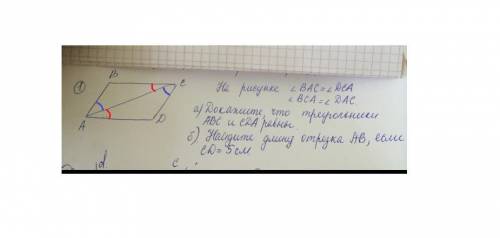 ① B C На рисунке ∠BAC = ∠DCA
∠BCA = ∠DAC.
A D а) Докажите, что треугольники
ABC и CDA равны.
б) Найдите длину отрезка AB, если
CD = 5 см